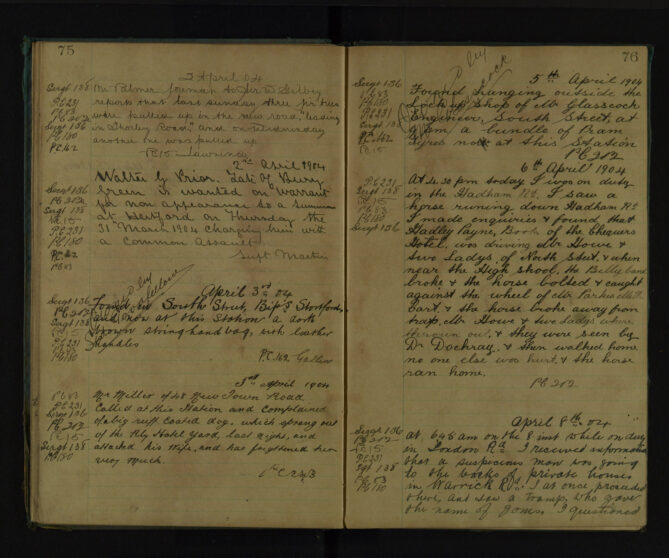 75
2 April 04
Sergt 138
PC 231
PC 83
PC 202
Sergt 136
PC 180
PC 162
Mr Palmer foreman to Sir W Gilbey
reports that last Sunday three fir trees
were pulled up in the new road, "leading
in Stortley Road," and on Wednesday
another one was pulled up
PC 15 Lawrence
2nd April 1904
Sergt 136
PC 202
Sergt 138
PC 15
PC 231
PC 180
PC 162
PC 83
Walter G Prior. Late of Bury
Green is wanted on Warrant
for non appearance to a summons
at Hertford on Thursday the
31 March 1904 Charging him with
a Common Assault
Supt Martin
April 3rd 04
Sergt 136
PC 202
Sergt 138
PC 15
PC 231
PC 83
PC 180
Found in South Street, Bp's Stortford,
and now at this Station a dark
brown string hand bag, with leather
handles
PC 162
3rd April 1904
PC 83
PC 231
Sergt 136
PC 202
PC 15
Sergt 138
PC 180
Mr Miller of 48 New Town Road
Called at this Station and complained
of a big ruff coated dog, which sprang out
of the Rly Hotel Yard, last night, and
attacked his wife, and has frightened her
very much.
76
5th April 1904
Sergt 136
PC 83
PC 180
PC 231
Sergt 138
PC 162
PC 15
Found hanging outside the
Lock up Shop of Mr Glasscock
Engineer, South Street, at
a bundle of Pram
Tyres now at this Station
PC 202
6th April 1904
PC 231
Sergt 138
PC 15
PC 83
PC 180
Sergt 136
At 4.30 pm today I was on duty
in the Hadham Rd, I saw a
horse running down Hadham Rd
I made enquiries & found that
Hadley Payne, Boots of the Chequers
Hotel, was driving Mr Howe &
two Ladys of North Street, & when
near the High School, the Belly band
broke & the horse bolted & caught
against the wheel of Mr
cart & the horse broke away from
trap, Mr Howe & two Ladys where
thrown out, & they were seen by
Dr Dockray, & then walked home
no one else was hurt & the horse
ran home.
PC 202
April 8th 04
Sergt 136
PC 202
PC 15
PC 231
Sgt 138
PC 83
PC 180
at 6.45 am on the 8 inst while on duty
in London Rd I received information
that a suspicious man was going
to the backs of private houses
in Warwick Rd. I at once proceeded
there, and saw a tramp, who gave
the name of Jones. I questioned